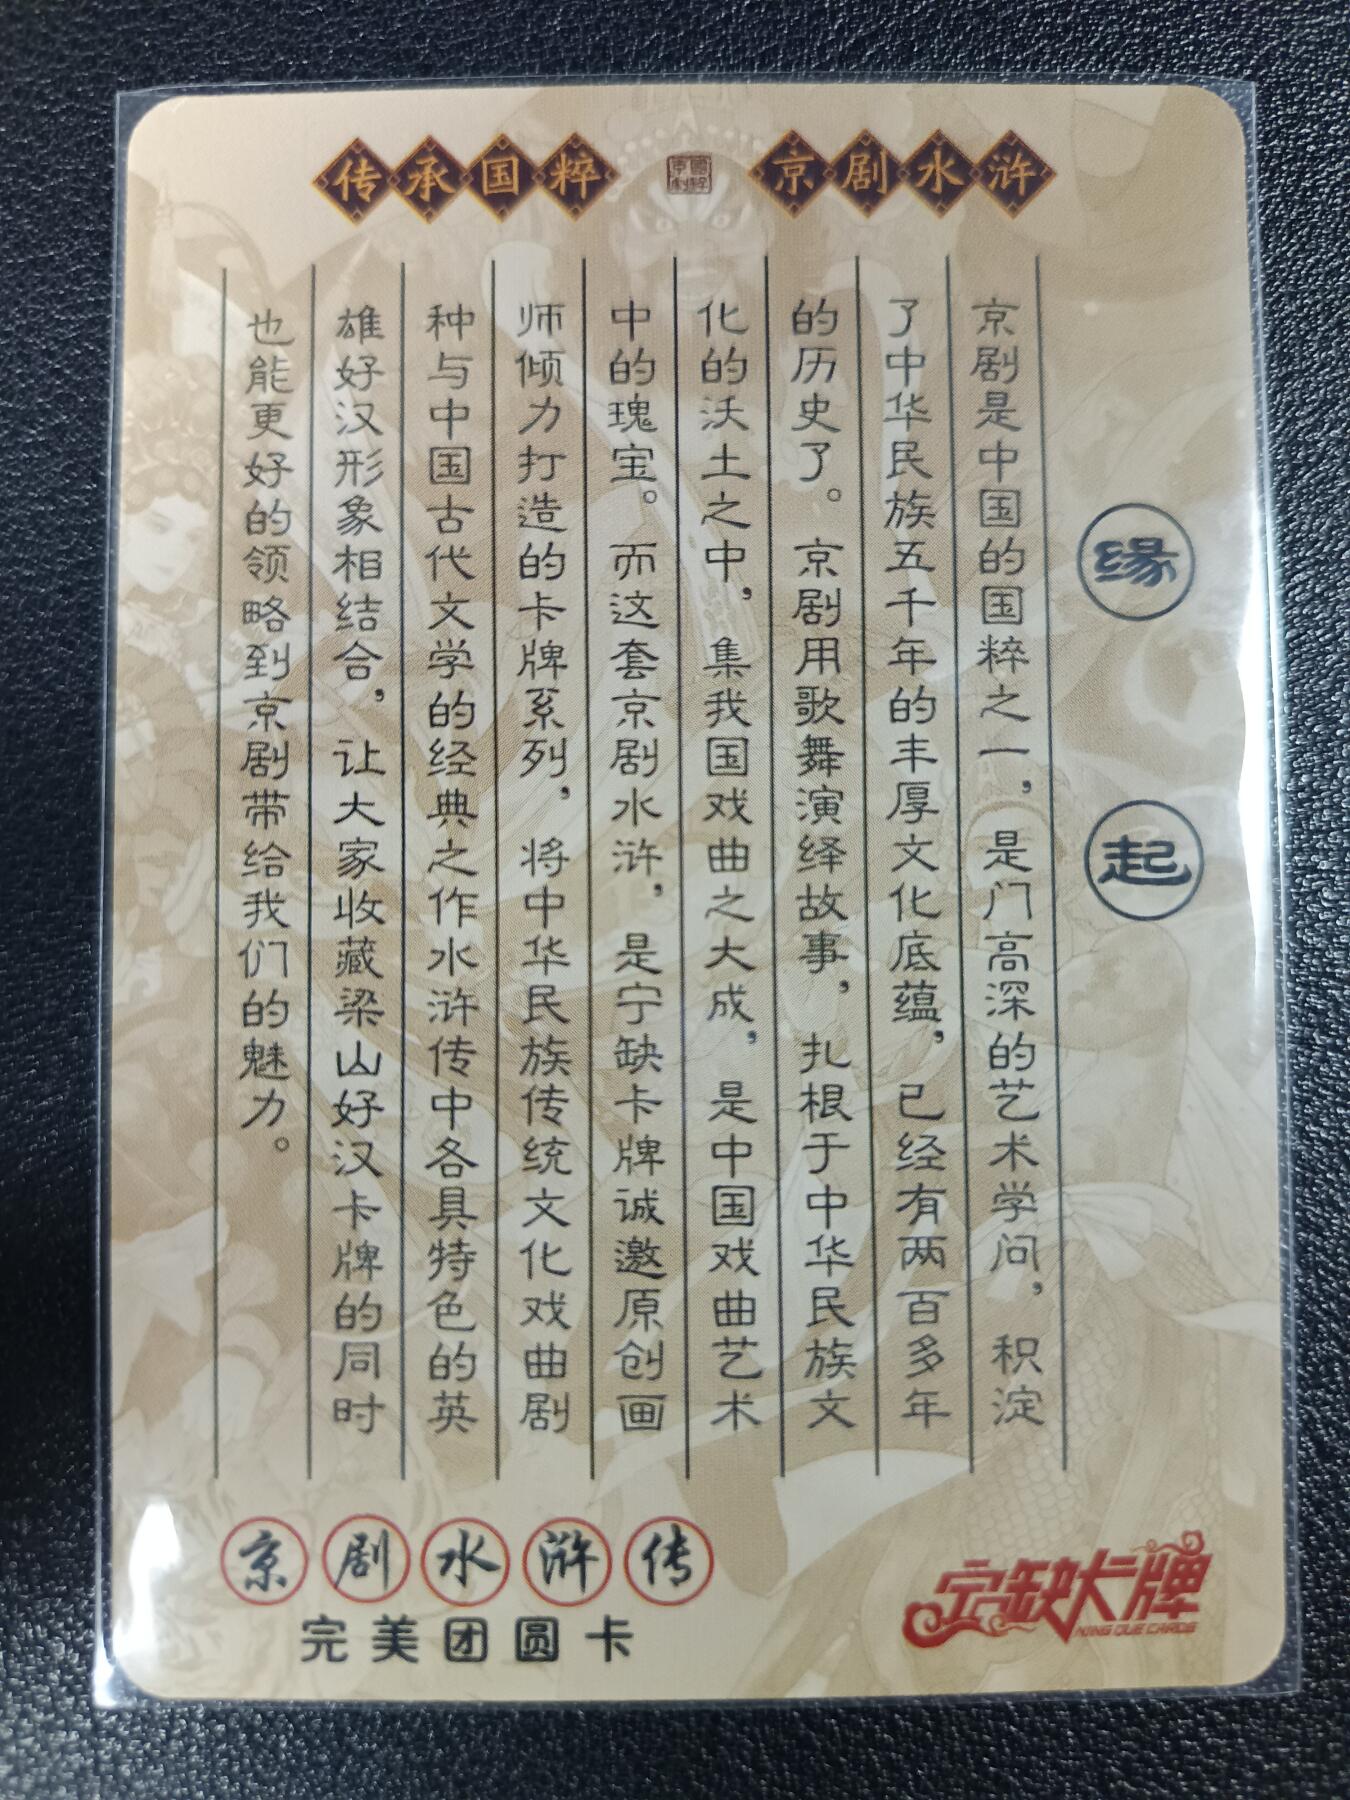 传承国粹 國粹京剧 京剧水浒
缘起
京剧是中国的国粹之一，是门高深的艺术学问，积淀
了中华民族五千年的丰厚文化底蕴，已经有两百多年
的历史了。京剧用歌舞演绎故事，扎根于中华民族文
化的沃土之中，集我国戏曲之大成，是中国戏曲艺术
中的瑰宝。而这套京剧水浒，是宁缺卡牌诚邀原创画
师倾力打造的卡牌系列，将中华民族传统文化戏曲剧
种与中国古代文学的经典之作水浒传中各具特色的英
雄好汉形象相结合，让大家收藏梁山好汉卡牌的同时
也能更好的领略到京剧带给我们的魅力。
京剧水浒传
完美团圆卡
宁缺卡牌
NING QUE CARDS